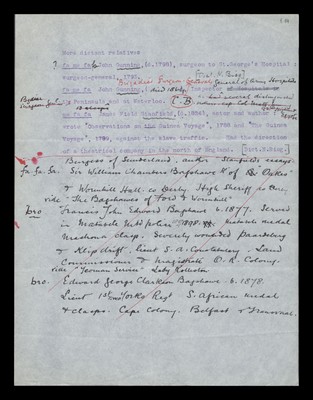 More distant relatives
? fa me fa fa John Gunning, (d.1798), surgeon to St.George's Hospital:
surgeon-general, 1793. (Dict N. Biog)
Brigadier Surgeon General
fa me fa John Gunning, (died 1863), Inspector of Hospitals
Peninsula and at Waterloo. C.B.
fa me fa fa James Field Stanfield, (d.1824), essay and author:
wrote "Observations on the Guinea Voyage", 1788 and "The Guinea
Voyage", 1789, against the slave traffic. Had the direction
of a theatrical company in the north of England. (Dict.N.Biog.)
Burgess of Sunderland. author Stanfield's essays.
fa. fa. fa. Sir William Chambers Bagshawe Kt of The Oakes
& Wormhill Hall. co Derby. High Sheriff 
vide "The Bagshawes of Ford & Wormhill"
bro Francis John Edward Bagshawe b. 1877. Served
in Matabele Mtd police medal
Mashona clasp. Severely wounded Paardeberg
& Klip drift, Lieut S. A. Constabulary - Land
Commissioner & Magistrate O. R. Colony.
vide "Yeoman Service" Lady Rolleston
bro. Edward George Clarkson Bagshawe b. 1878.
Lieut 1st Yorks Regt S. African medal
& clasps. Cape Colony. Belfast &